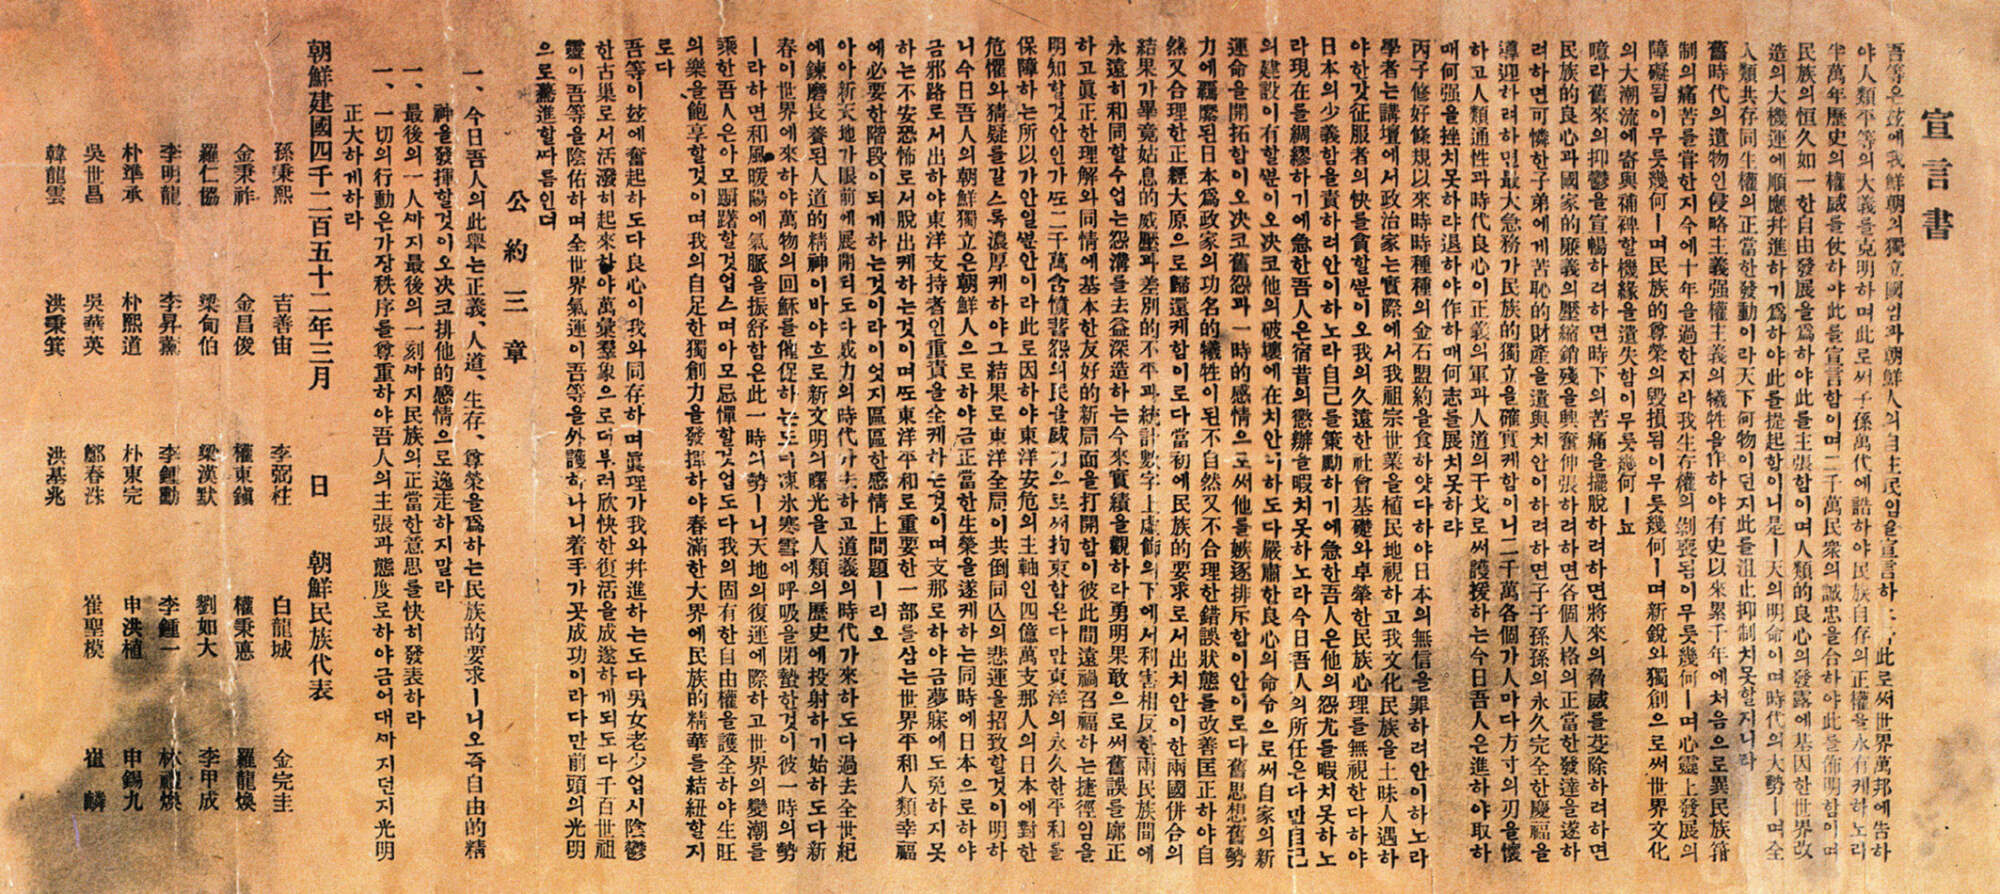 宣言書
吾等은玆에我鮮朝의獨立國임과朝鮮人의自主民임을宣言하노라此로써世界萬邦에告하
야人類平等의大義를克明하며此로써子孫萬代에誥하야民族自存의正權을永有케하노라
半萬年歷史의權威를仗하야此를宣言함이며二千萬民衆의誠忠을合하야此를佈明함이며
民族의恒久如一한自由發展을爲하야此를主張함이며人類的良心의發露에基因한世界改
造의大機運에順應幷進하기爲하야此를提起함이니是ㅣ天의明命이며時代의大勢ㅣ며全
人類共存同生權의正當한發動이라天下何物이던지此를沮止抑制치못할지니라
舊時代의遺物인侵略主義强權主義의犧牲을作하야有史以來累千年에처음으로異民族箝
制의痛苦를嘗한지今에十年을過한지라我生存權의剝喪됨이무릇幾何ㅣ며心靈上發展의
障礙됨이무릇幾何ㅣ며民族的尊榮의毁損됨이무릇幾何ㅣ며新銳와獨創으로써世界文化
의大潮流에寄與補裨할機緣을遺失함이무릇幾何ㅣ뇨
噫라舊來의抑鬱을宣暢하려하면時下의苦痛을擺脫하려하면將來의脅威를芟除하려하면
民族的良心과國家的廉義의壓縮銷殘을興奮伸張하려하면各個人格의正當한發達을遂하
려하면可憐한子弟에게苦恥的財産을遺與치안이하려하면子子孫孫의永久完全한慶福을
導迎하려하면最大急務가民族的獨立을確實케함이니二千萬各個가人마다方寸의刃을懷
하고人類通性과時代良心이正義의軍과人道의干戈로써護援하는今日吾人은進하야取하
매何强을挫치못하랴退하야作하매何志를展치못하랴
丙子修好條規以來時時種種의金石盟約을食하얏다하야日本의無信을罪하려안이하노라
學者는講壇에서政治家는實際에서我祖宗世業을植民地視하고我文化民族을土昧人遇하
야한갓征服者의快를貪할뿐이오我의久遠한社會基礎와卓犖한民族心理를無視한다하야
日本의少義함을責하려안이하노라自己를策勵하기에急한吾人은他의怨尤를暇치못하노
라現在를綢繆하기에急한吾人은宿昔의懲辦을暇치못하노라今日吾人의所任은다만自己
의建設이有할뿐이오決코他의破壞에在치안이하도다嚴肅한良心의命令으로써自家의新
運命을開拓함이오決코舊怨과一時的感情으로써他를嫉逐排斥함이안이로다舊思想舊勢
力에羈縻된日本爲政家의功名的犧牲이된不自然又不合理한錯誤狀態를改善匡正하야自
然又合理한正經大原으로歸還케함이로다當初에民族的要求로서出치안이한兩國倂合의
結果가畢竟姑息的威壓과差別的不平과統計數字上虛飾의下에서利害相反한兩民族間에
永遠히和同할수업는怨溝를去益深造하는今來實績을觀하라勇明果敢으로써舊誤를廓正
하고眞正한理解와同情에基本한友好的新局面을打開함이彼此間遠禍召福하는捷徑임을
明知할것안인가또二千萬含憤蓄怨의民을威力으로써拘束함은다만東洋의永久한平和를
保障하는所以가안일뿐안이라此로因하야東洋安危의主軸인四億萬支那人의日本에對한
危懼와猜疑를갈스록濃厚케하야그結果로東洋全局이共倒同亡의悲運을招致할것이明하
니今日吾人의朝鮮獨立은朝鮮人으로하야금正當한生榮을遂케하는同時에日本으로하야
금邪路로서出하야東洋支持者인重責을全케하는것이며支那로하야금夢寐에도免하지못
하는不安恐怖로서脫出케하는것이며또東洋平和로重要한一部를삼는世界平和人類幸福
에必要한階段이되게하는것이라이엇지區區한感情上問題ㅣ리오
아아新天地가眼前에展開되도다威力의時代가去하고道義의時代가來하도다過去全世紀
에鍊磨長養된人道的精神이바야흐로新文明의曙光을人類의歷史에投射하기始하도다新
春이世界에來하야萬物의回穌를催促하는도다凍氷寒雪에呼吸을閉蟄한것이彼一時의勢
ㅣ라하면和風暖陽에氣脈을振舒함은此一時의勢ㅣ니天地의復運에際하고世界의變潮를
乘한吾人은아모躕躇할것업스며아모忌憚할것업도다我의固有한自由權을護全하야生旺
의樂을飽享할것이며我의自足한獨創力을發揮하야春滿한大界에民族的精華를結紐할지
로다
吾等이玆에奮起하도다良心이我와同存하며眞理가我와幷進하는도다男女老少업시陰鬱
한古巢로서活潑히起來하야萬彙羣象으로더부러欣快한復活을成遂하게되도다千百世祖
靈이吾等을陰佑하며全世界氣運이吾等을外護하나니着手가곳成功이라다만前頭의光明
으로驀進할따름인뎌
公約三章
一、今日吾人의此擧는正義、人道、生存、尊榮을爲하는民族的要求ㅣ니오즉自由的精
神을發揮할것이오決코排他的感情으로逸走하지말라
一、最後의一人까지最後의一刻까지民族의正當한意思를快히發表하라
一、一切의行動은가장秩序를尊重하야吾人의主張과態度로하야금어대까지던지光明
正大하게하라
朝鮮建國四千二百五十二年三月 日 朝鮮民族代表
孫秉熙 吉善宙 李弼柱 白龍城 金完圭
金秉祚 金昌俊 權東鎭 權秉悳 羅龍煥
羅仁協 梁甸伯 梁漢默 劉如大 李甲成
李明龍 李昇薰 李鍾勳 李鍾一 林禮煥
朴準承 朴熙道 朴東完 申洪植 申錫九
吳世昌 吳華英 鄭春洙 崔聖模 崔麟
韓龍雲 洪秉箕 洪基兆